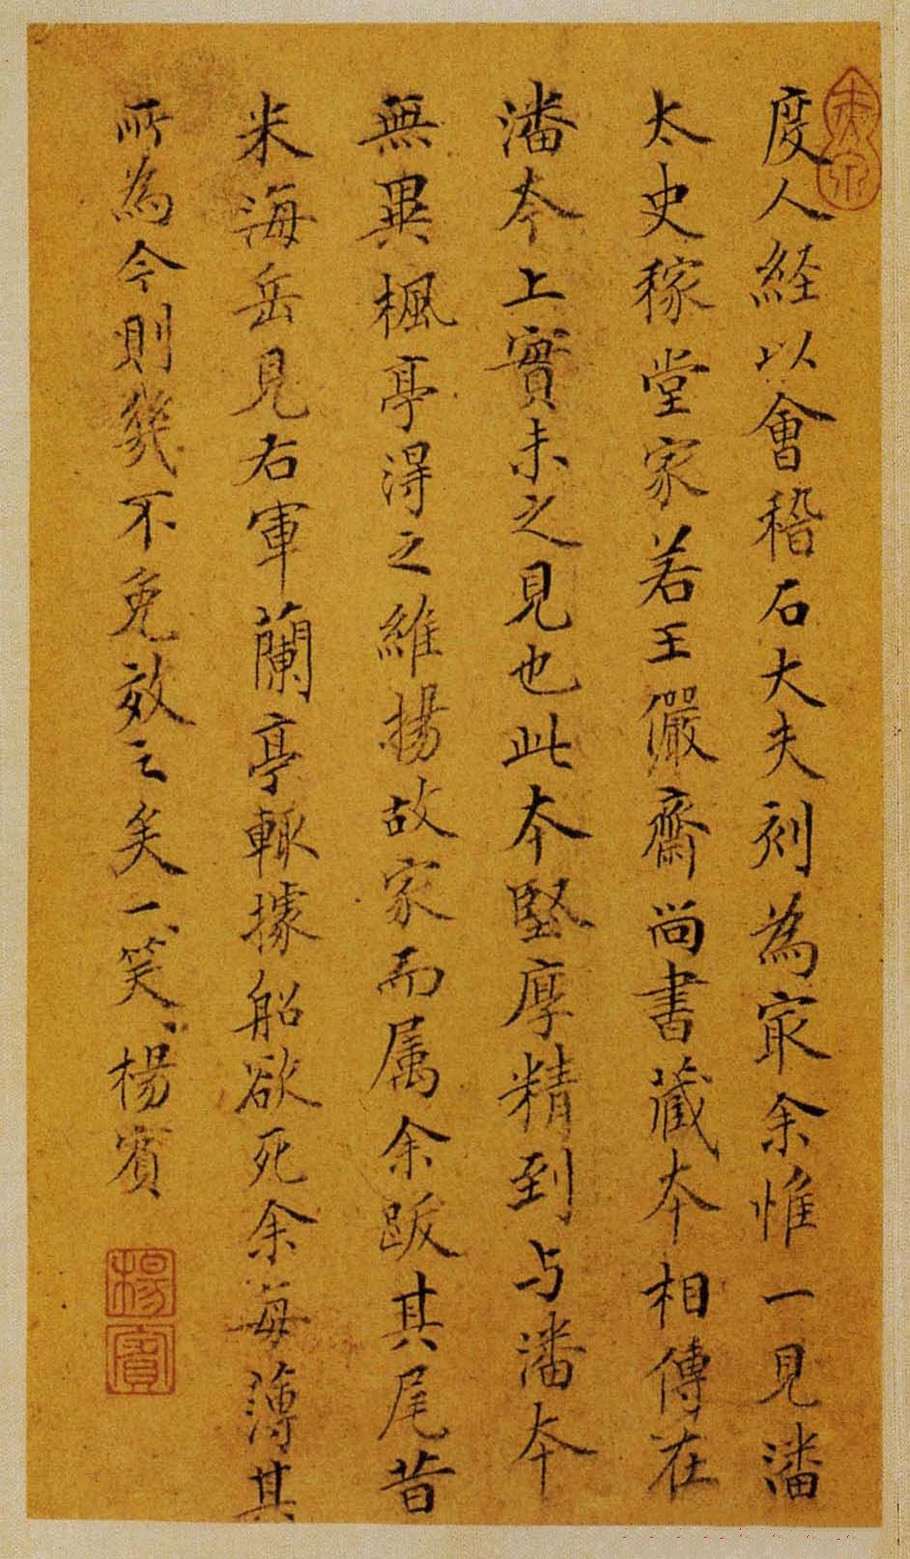 度人経以會稽石大夫刻為㝡余惟一見潘
太史稼堂家若王儼齋尚書藏本相傳在
潘本上實未之見也此本堅厚精到与潘本
無異楓亭得之維揚故家而属余跋其尾昔
米海岳見右軍蘭亭輙據船欲死余每薄其
所為今則幾不免效之矣一笑楊賓
楊賓